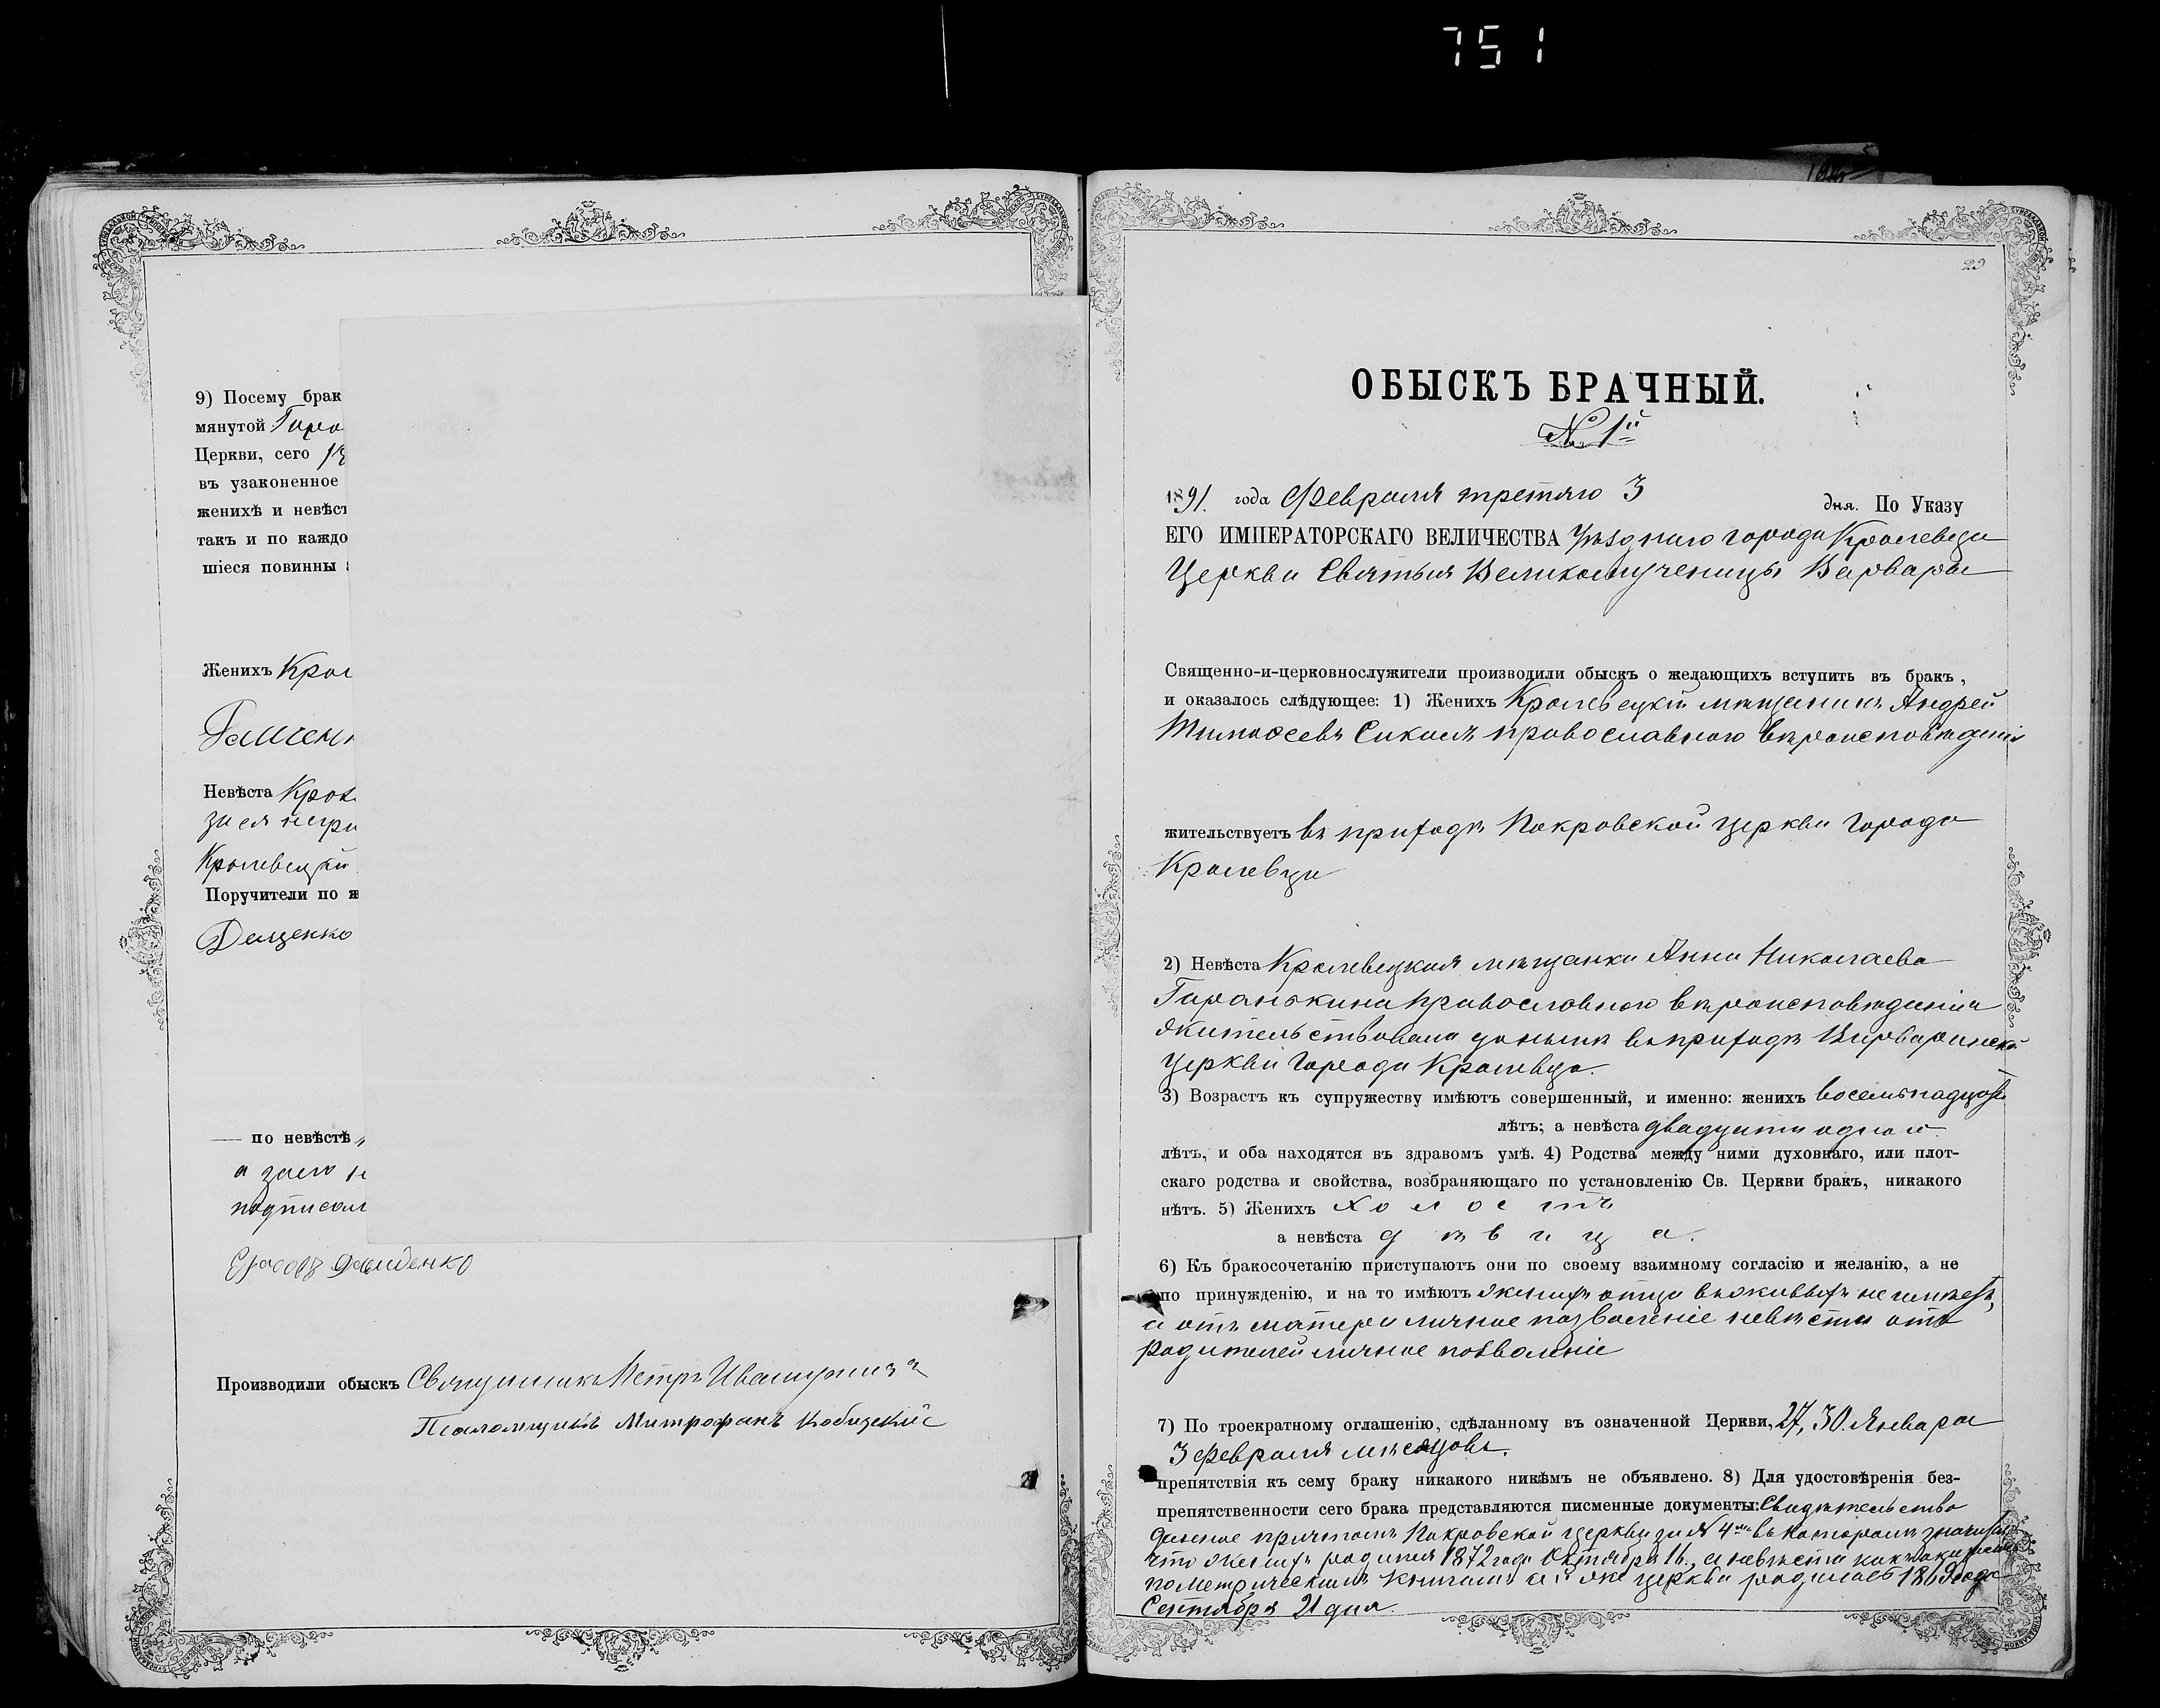 751
9) Посему брак
мянутой
Церкви, сего
въ узаконенное
женихѣ и невѣст
такъ и по каждо
шіеся повинны
Женихъ
Невѣста
Кролевецкій
Поручители по ж
Дащенко
— по невѣстѣ
а за его н
подписал
Производили обыскъ Священникъ Петръ
Псаломщикъ Митрофанъ
29
ОБЫСКЪ БРАЧНЫЙ.
№ 1й
1891. года Февраля третяго 3 дня. По Указу
ЕГО ИМПЕРАТОРСКАГО ВЕЛИЧЕСТВА Уѣзднаго города Кролевца
Церкви Святыя Великомученицы Варвары
Священно-и-церковнослужители производили обыскъ о желающихъ вступить въ бракъ,
и оказалось слѣдующее: 1) Женихъ Кролевецкій мѣщанинъ Андрей
Тимоѳеевъ православнаго вѣроисповѣданія
жительствуетъ въ приходѣ Покровской церкви города
Кролевца
2) Невѣста Кролевецкая мѣщанка Анна Николаева
Гаранькина православнаго вѣроисповѣданія
жительствовала донынѣ въ приходѣ Варваринской
церкви города Кролевца.
3) Возрастъ къ супружеству имѣютъ совершенный, и именно: женихъ восемьнадцать
лѣтъ; а невѣста двадцати одного
лѣтъ, и оба находятся въ здравомъ умѣ. 4) Родства между ними духовнаго, или плот-
скаго родства и свойства, возбраняющаго по установленію Св. Церкви бракъ, никакого
нѣтъ. 5) Женихъ холостъ
а невѣста дѣвица.
6) Къ бракосочетанію приступаютъ они по своему взаимному согласію и желанію, а не
по принужденію, и на то имѣютъ женихъ отца въ живыхъ не имѣетъ,
а отъ матери личное позволеніе невѣста отъ
родителей личное позволеніе
7) По троекратному оглашенію, сдѣланному въ означенной Церкви, 27, 30. Января
3 февраля мѣсяцовъ.
препятствія къ сему браку никакого никѣмъ не объявлено. 8) Для удостовѣренія без-
препятственности сего брака представляются писменные документы: Свидѣтельство
данное причтомъ Покровской церкви за № 4мъ въ которомъ значится
что женихъ родился 1872 года Октября 16., а невѣста
по метрическимъ книгамъ сей же церкви родилась 1869 года
Сентября 21 дня.